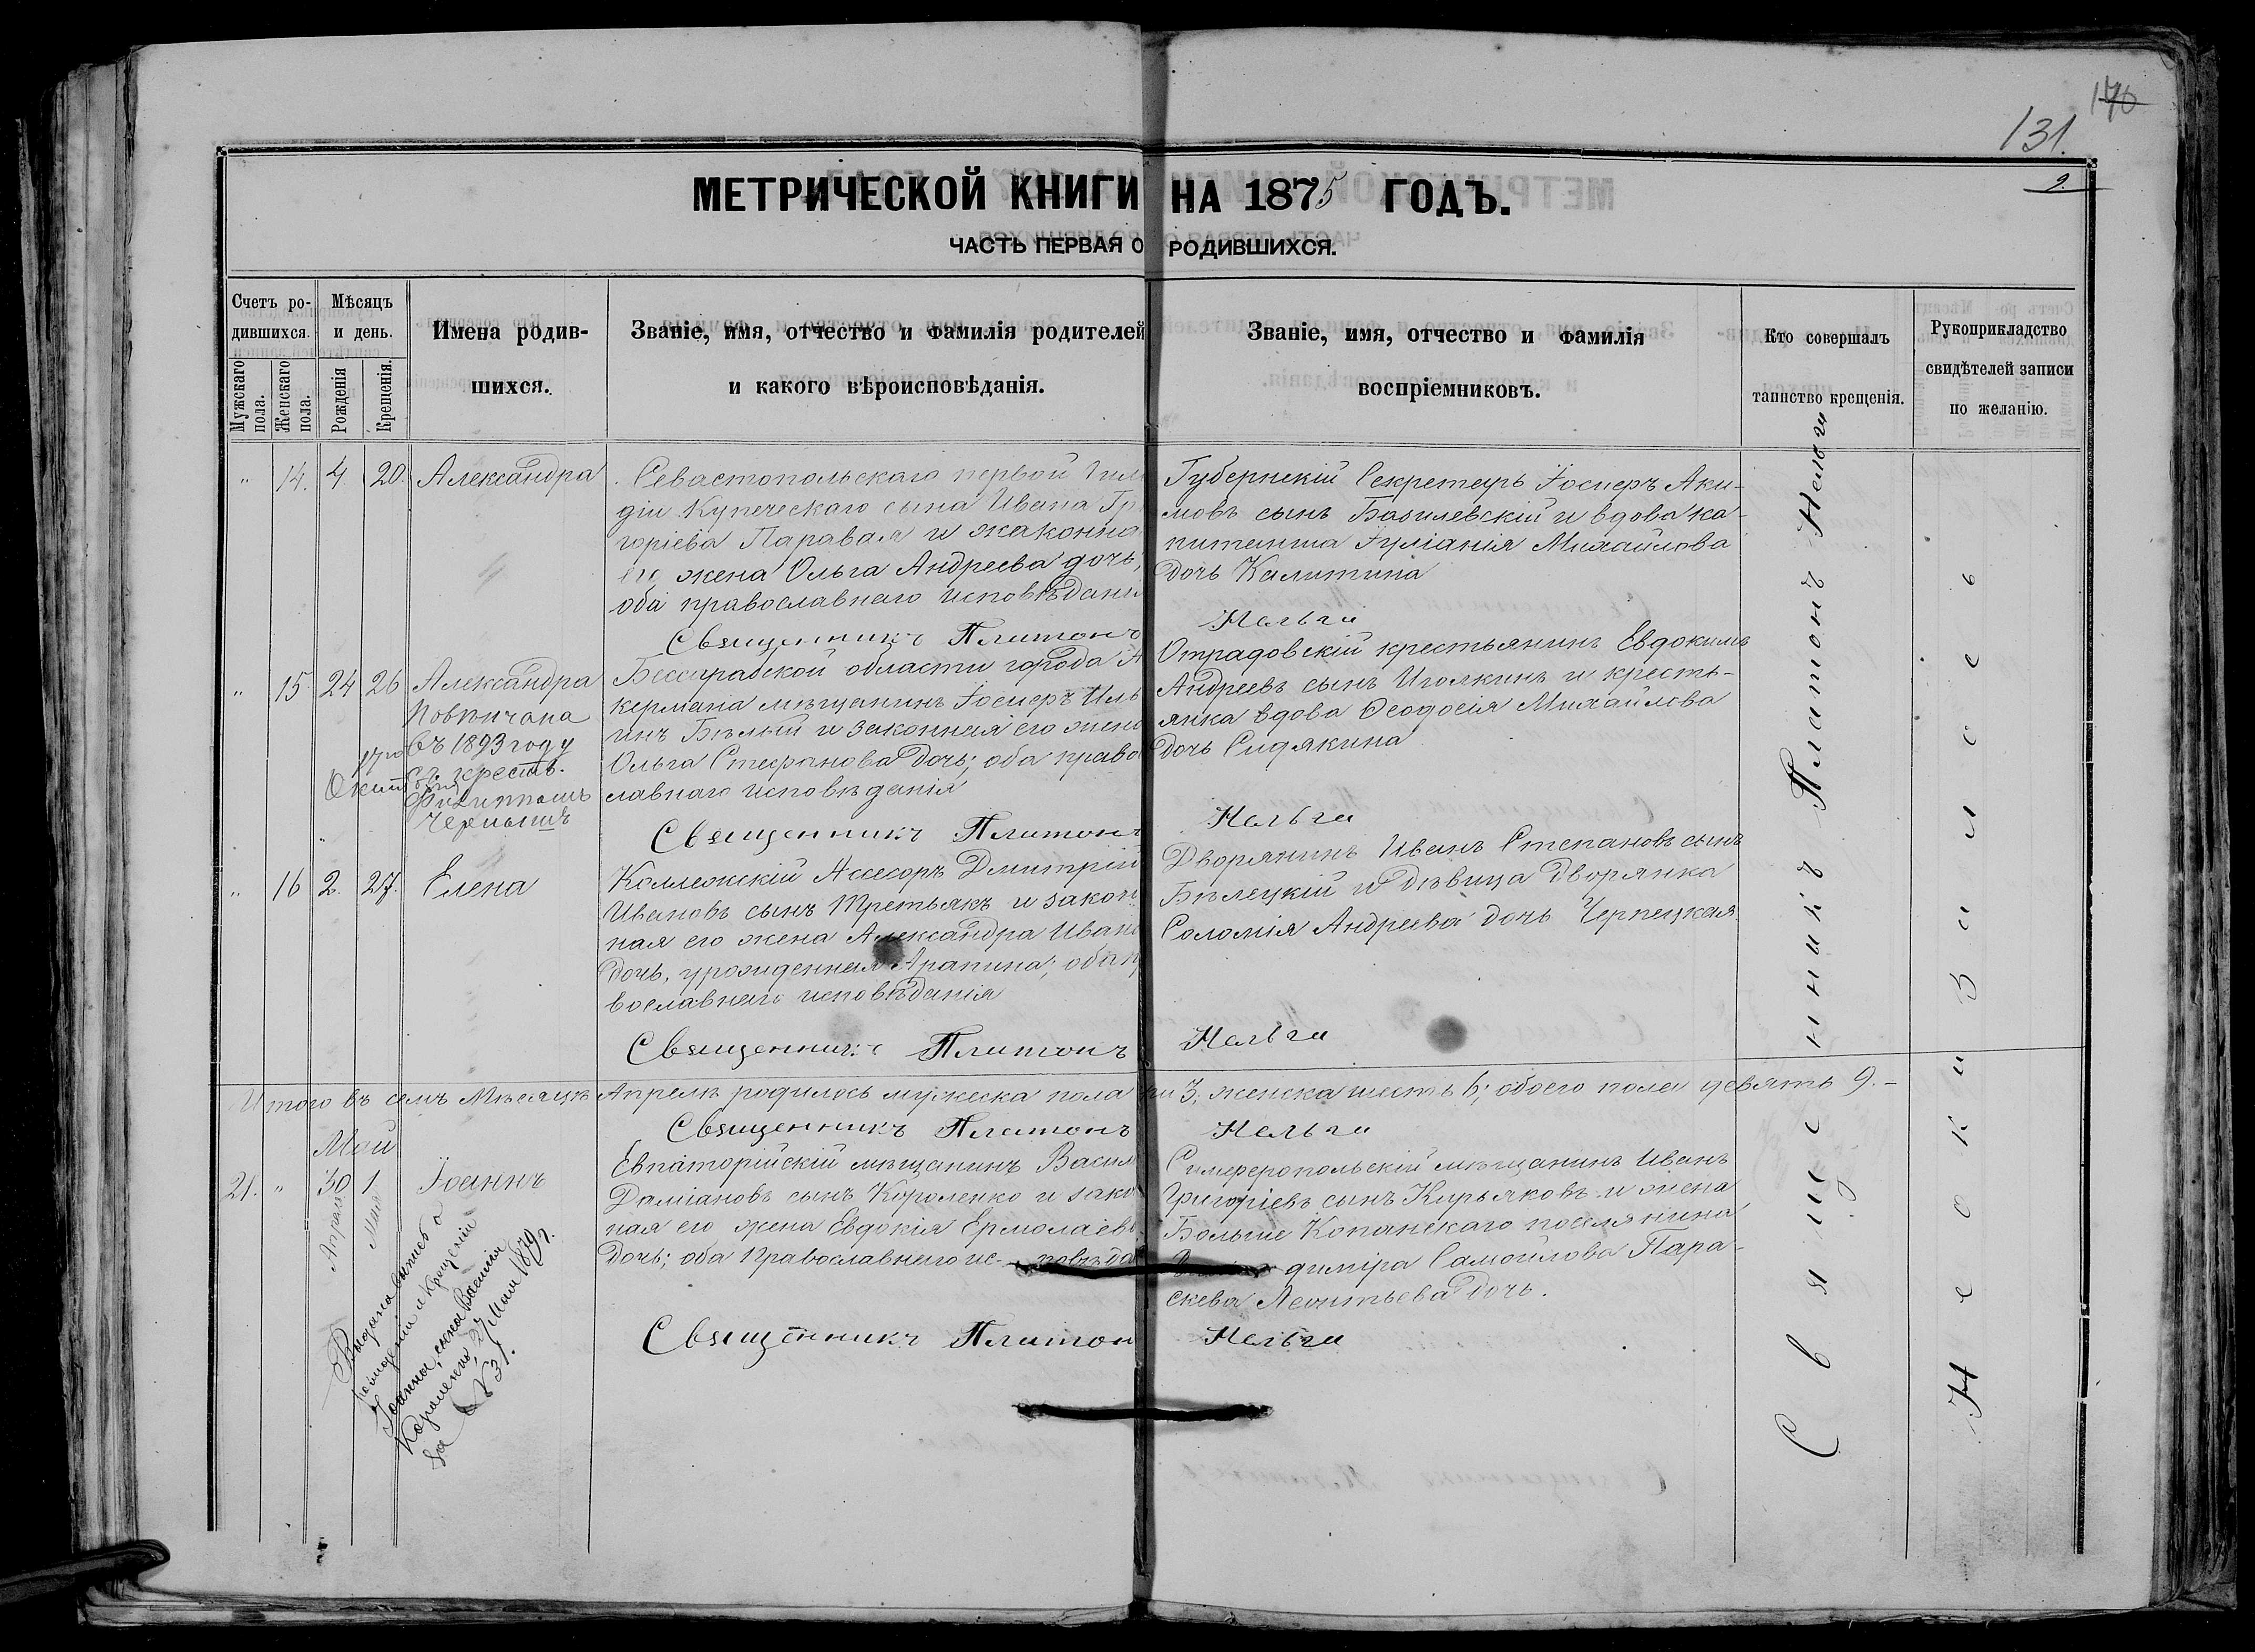 170
131.
9.
МЕТРИЧЕСКОЙ КНИГИ НА 1875 ГОДЪ.
ЧАСТЬ ПЕРВАЯ О РОДИВШИХСЯ.
Счетъ ро-
дившихся.
Мужскаго пола.
Женскаго пола.
Мѣсяцъ
и день.
Рожденія
Крещенія.
Имена родив-
шихся.
Званіе, имя, отчество и фамилія родителей
и какого вѣроисповѣданія.
Званіе, имя, отчество и фамилія
воспріемниковъ.
Кто совершалъ
таинство крещенія.
Рукоприкладство
свидѣтелей записи
по желанію.
" 14. 4 20. Александра
Севастопольскаго первой Гил
діи Купеческаго сына Ивана Гр
горіева Паравая и законна
его жена Ольга Андреева дочь,
оба православнаго исповѣдані
Священникъ Платонъ
Губернскій Секретарь Іосифъ Аки-
мовъ сынъ Базилевскій и вдова ка-
питанша Іуліанія Михайлова
дочь Калитина
Нельга
" 15 24 26 Александра
Повѣнчана
въ 1893 году
17го Октября
съ крест.
Филиппомъ
Бессарабской области города А
кермана мѣщанинъ Іосифъ Иль
инъ Бѣлый и законная его жена
Ольга Стефанова дочь; оба право
славнаго исповѣданія
Священникъ Платонъ
Отрадовскій крестьянинъ Евдокимъ
Андреевъ сынъ Иголкинъ и кресть-
янка вдова Ѳеодосія Михайлова
дочь Сидякина
Нельга
" 16 2. 27. Елена
Коллежскій Ассесоръ Дмитрій
Ивановъ сынъ Третьякъ и закон
ная его жена Александра Иван
дочь, урожденная Арапина; оба п
вославнаго исповѣданія
Священникъ Платонъ
Дворянинъ Иванъ Степановъ сынъ
Бѣлецкій и дѣвица Дворянка
Соломія Андреева дочь Чернецкая
Нельга
Итого въ семъ Мѣсяцѣ Апрелѣ родилось мужеска пола ри 3, женска шесть 6; обоего пола девять 9. –
Священникъ Платонъ Нельга
Май
21. " 30 1. Іоаннъ
Апреля
Мая
Выдана выпись о
рожденіи и крещеніи
Іоанна, сына Василія
Короленко, 27 Мая 1879 г.
за № 31.
Евпаторійскій мѣщанинъ Васил
Даміановъ сынъ Короленко и зако
ная его жена Евдокія Ермолаев
дочь; оба Православнаго ис- повѣда
Священникъ Платон
Симферопольскій мѣщанинъ Иванъ
Григоріевъ сынъ Кирьяковъ и жена
Больше Копанскаго поселянина
димира Самойлова Пара-
скева Леонтьева дочь.
Нельга
Священникъ Платонъ Нельга
Н е о к и З а п и с е в